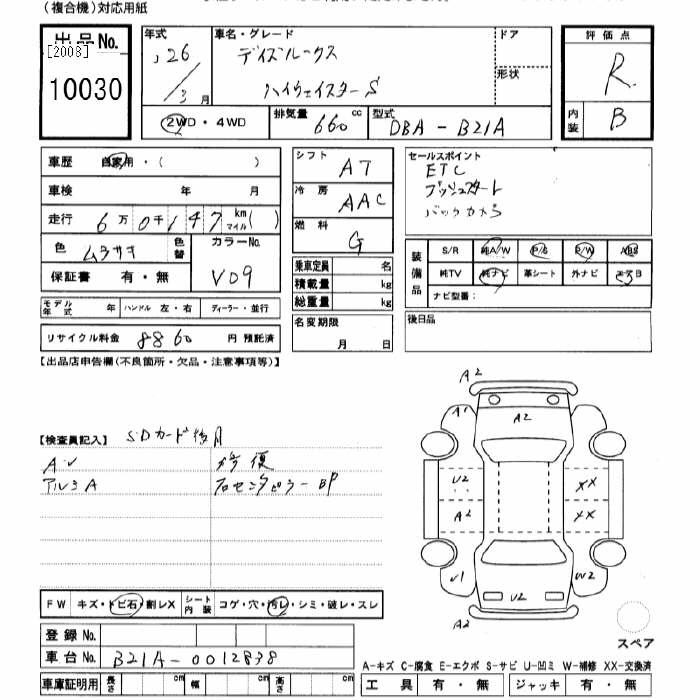 (複合機)対応用紙
出品No.
[2008]
10030
年式
26
3月
車名・グレード
デイズルークス
ハイウェイスターS
ドア
形状
評価点
R
内装
B
2WD・4WD
排気量
660 cc
型式
DBA-B21A
車歴 自家用・( )
車検 年 月
走行 6万0千147 km マイル( )
色 ムラサキ 色替
カラーNo.
V09
保証書 有・無
シフト AT
冷房 AAC
燃料 G
乗車定員 名
積載量 kg
総重量 kg
セールスポイント
ETC
プッシュスタート
バックカメラ
装備品
S/R 純A/W P/S P/W ABS
純TV 純ナビ 革シート 外ナビ エアB
ナビ型番:
モデル年式 年 ハンドル 左・右 ディーラー・並行
名変期限
月 日
後日品
リサイクル料金 8860 円 預託済
【出品店申告欄(不良箇所・欠品・注意事項等)】
A2
A1
A2
【検査員記入】 SDカード後日
修復
アルミA
右センタピラーBP
U2
XX
A2
XX
U1
W2
U2
A2
FW キズ・トビ石・割レX シート内装 コゲ・穴・汚レ・シミ・破レ・スレ
スペア
登録No.
車台No. B21A-0012838
車庫証明用 長さ cm 幅 cm 高さ cm
A-キズ C-腐食 E-エクボ S-サビ U-凹ミ W-補修 XX-交換済
工具 有・無 ジャッキ 有・無